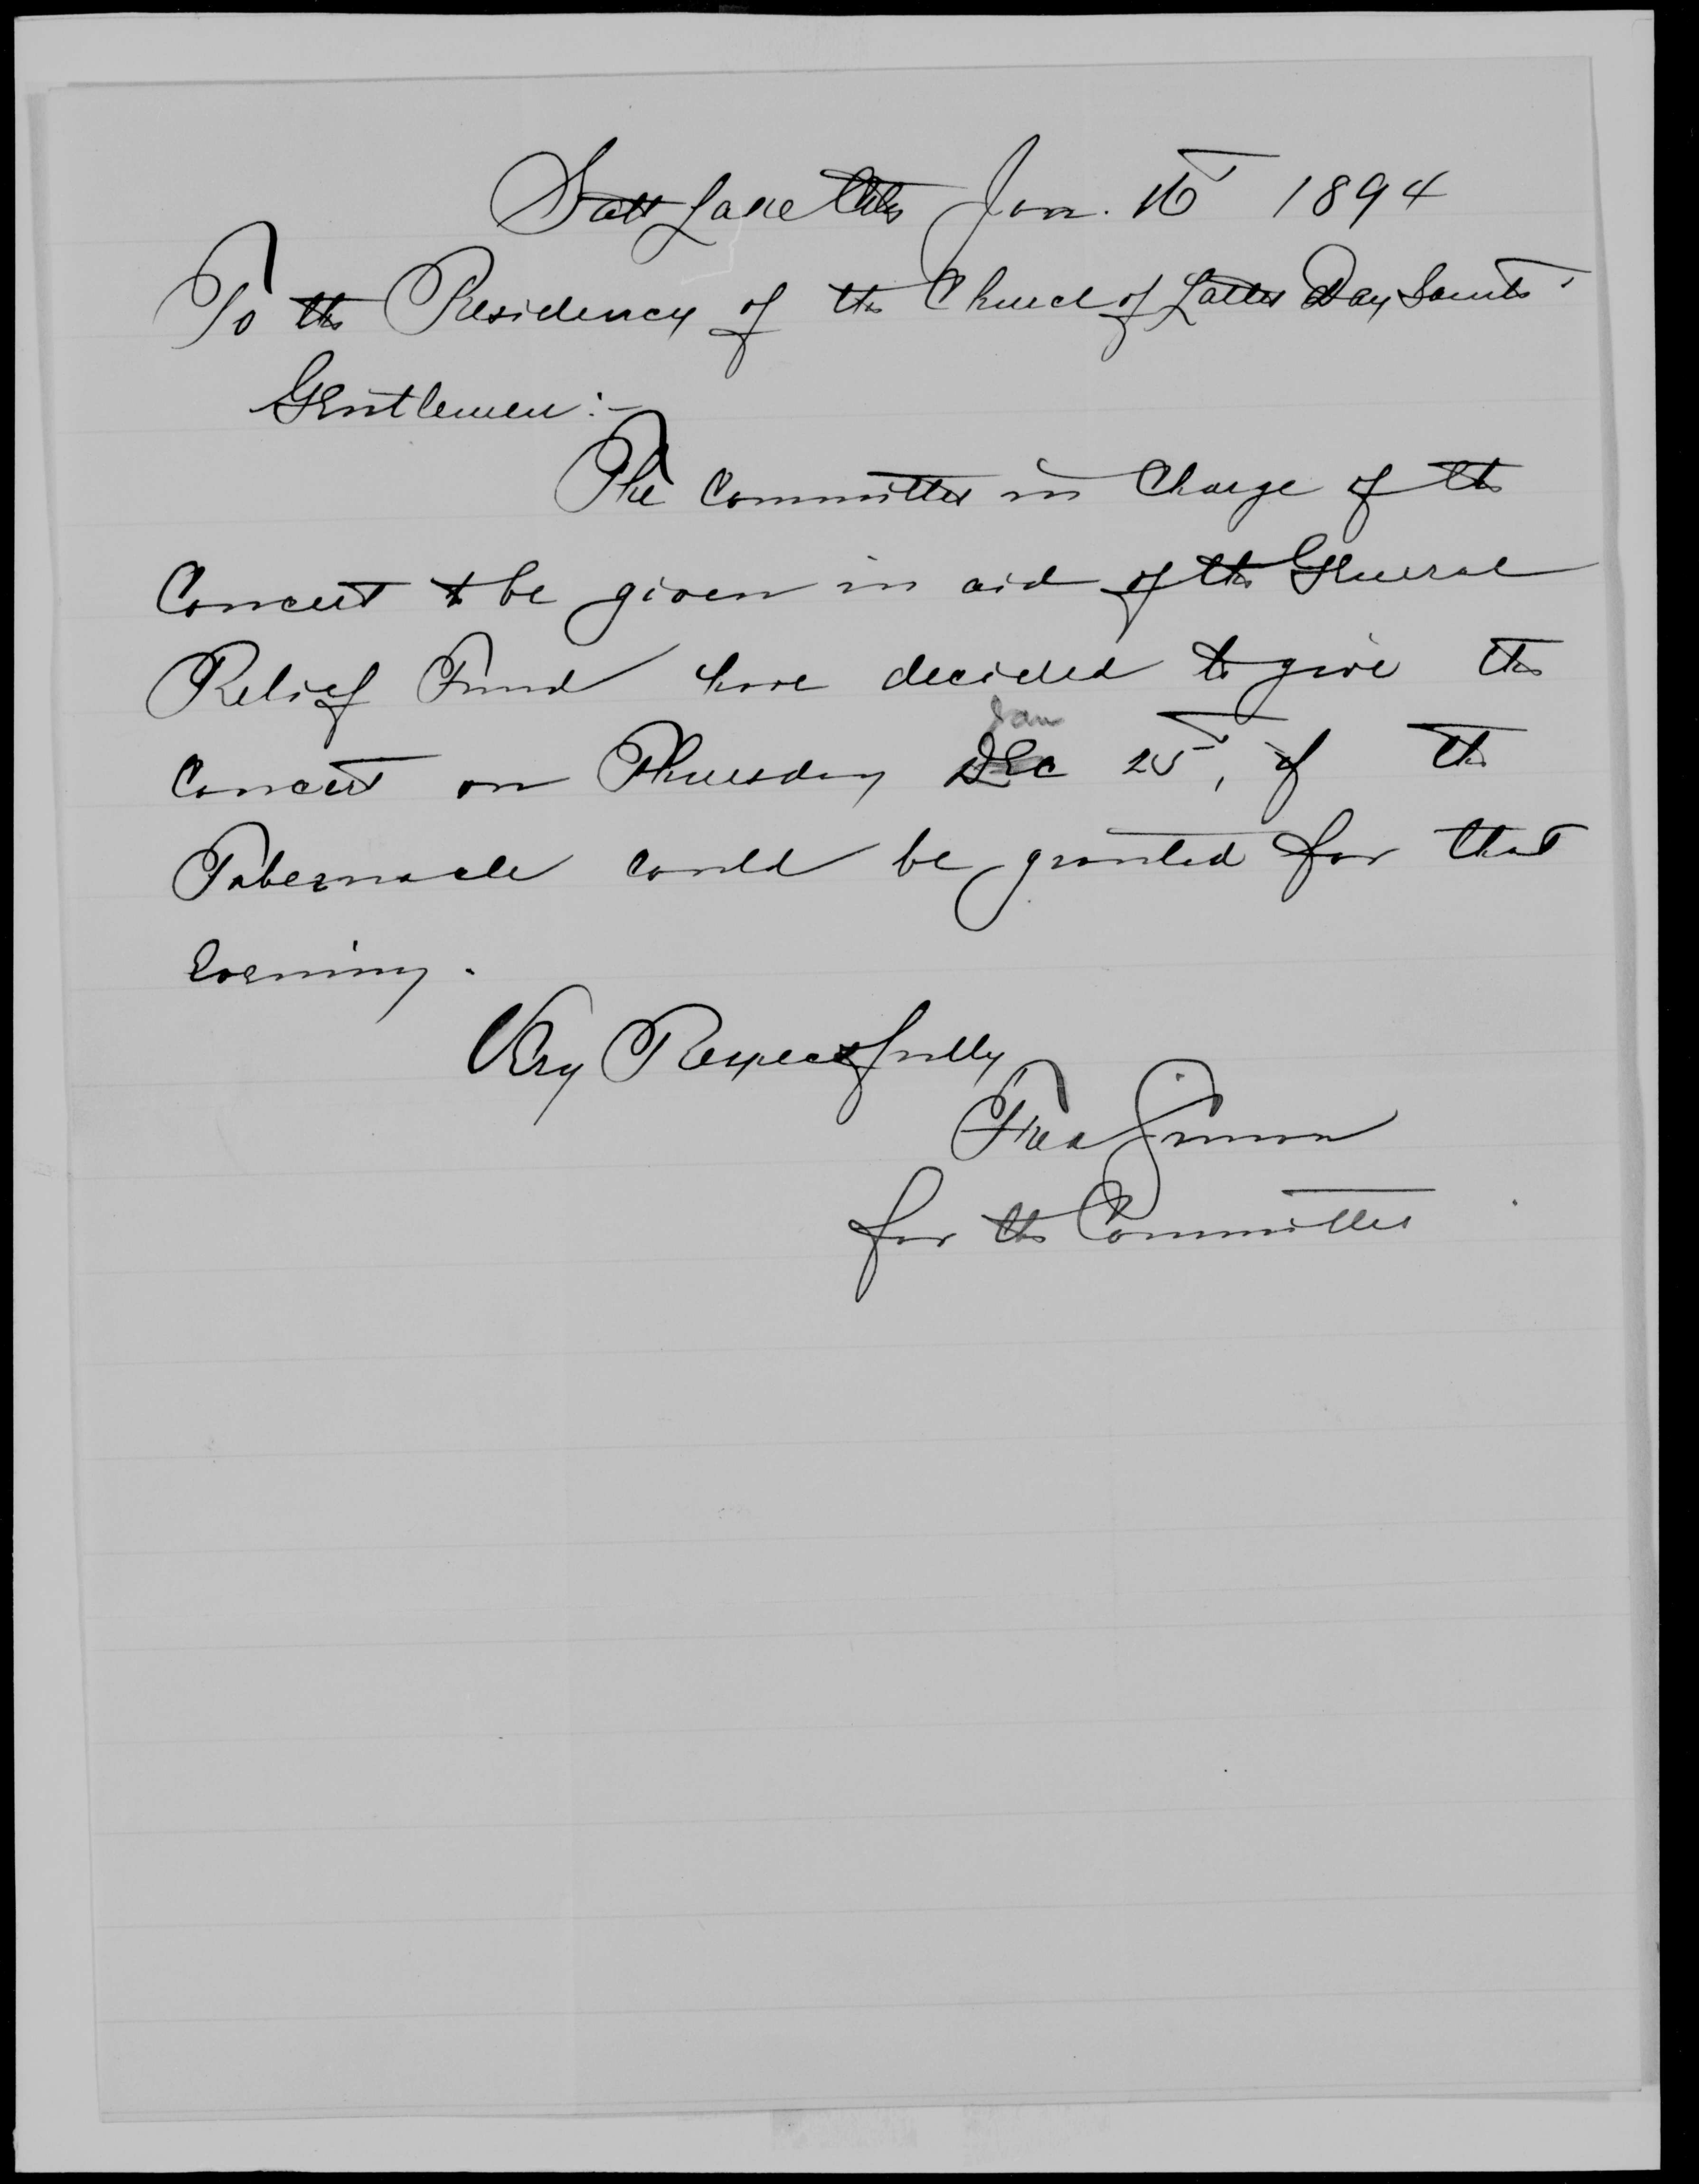 Salt Lake City Jan. 16 1894
To the Presidency of the Church of Latter Day Saints
Gentlemen:-
The Committee in Charge of the
Concert to be given in aid of the General
Relief Fund have decided to give the
Jan
Concert on Thursday Dec 25, if the
Tabernacle could be granted for that
Evening.
Very Respectfully
Fred Simon
for the Committee